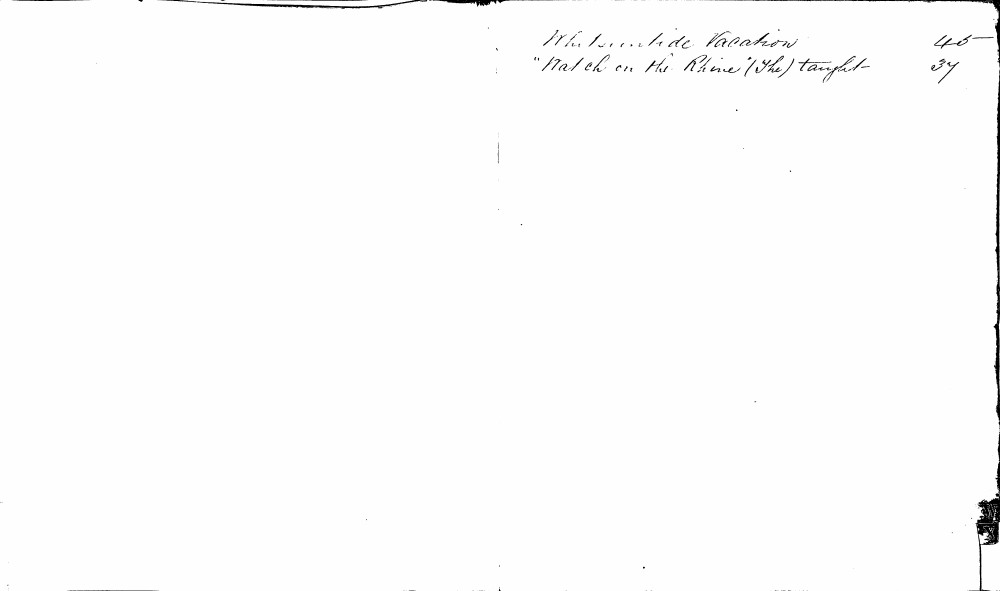 Whitsuntide Vacation 45
"Watch on the Rhine" (The) taught 37